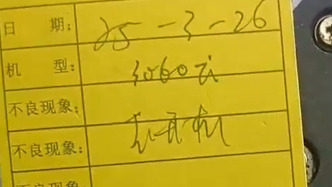 日 期: 25-3-26
机 型: 3060ti
不良现象: 无开机
不良现象:
不良现象